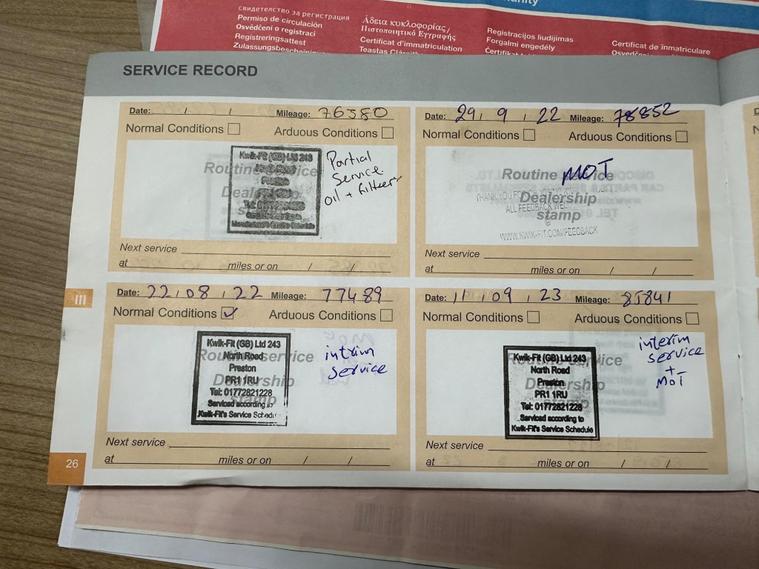 anity
СВИДЕТЕЛЬСТВО ЗА РЕГИСТРАЦИЯ
Permiso de circulación
Osvědčení o registraci
Registreringsattest
Zulassungsbescheinigung
Άδεια κυκλοφορίας/
Πιστοποιητικό Εγγραφής
Certificat d'immatriculation
Teastas
Registracijos liudijimas
Forgalmi engedély
Certificat de înmatriculare
SERVICE RECORD
Date: / / Mileage: 76380
Normal Conditions Arduous Conditions
Kwik-Fit (GB) Ltd 243
Preston
Routine Service
Dealership
stamp
Partial
Service
oil + filters
Next service
at miles or on / /
Date: 29, 9, 22 Mileage: 78852
Normal Conditions Arduous Conditions
MOT
Routine Service
Dealership
stamp
ALL FEEDBACK
WWW.KWIK-FIT.COM/FEEDBACK
Next service
at miles or on / /
III
Date: 22, 08, 22 Mileage: 77489
Normal Conditions ✓ Arduous Conditions
Kwik-Fit (GB) Ltd 243
North Road
Preston
PR1 1RU
Tel: 01772821228
Serviced according to
Kwik-Fit's Service Schedule
Routine Service
Dealership
stamp
intrim
service
Next service
at miles or on / /
Date: 11, 09, 23 Mileage: 85841
Normal Conditions Arduous Conditions
Kwik-Fit (GB) Ltd 243
North Road
Preston
PR1 1RU
Tel: 01772821228
Serviced according to
Kwik-Fit's Service Schedule
Routine Service
Dealership
stamp
interim
service
+
MOT
Next service
at miles or on / /
26